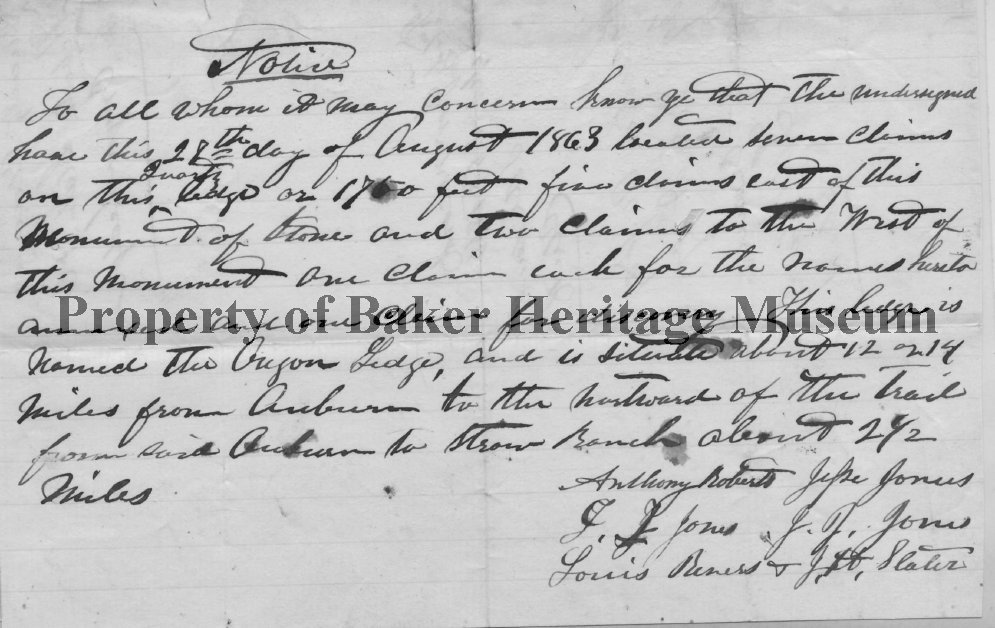 Notice
To all whom it may concern know ye that the undersigned
have this 28th day of August 1863 located seven claims
on this Quartz ledge or 1750 feet five claims east of this
Monument of stone and two claims to the West of
this Monument one claim each for the names hereto
annexed and one claim for discovery This ledge is
Property of Baker Heritage Museum
named the Oregon Ledge, and is situate about 12 or 14
miles from Auburn to the nortward of the trail
from said Auburn to Straw Ranch about 2 1/2
Miles
Anthony Roberts Jesse Jones
T. J. Jones J. T. Jones
Louis & Slater